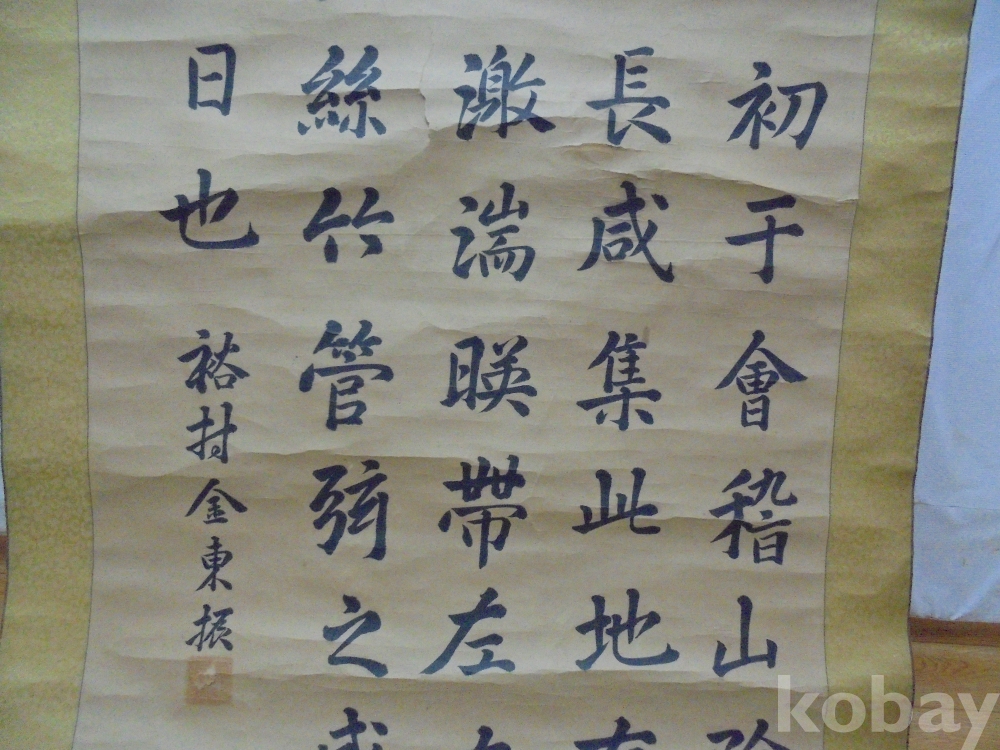 初于會稽山
長咸集此地有
激湍暎帶左
絲竹管弦之盛
日也 裕村金東振
kobay